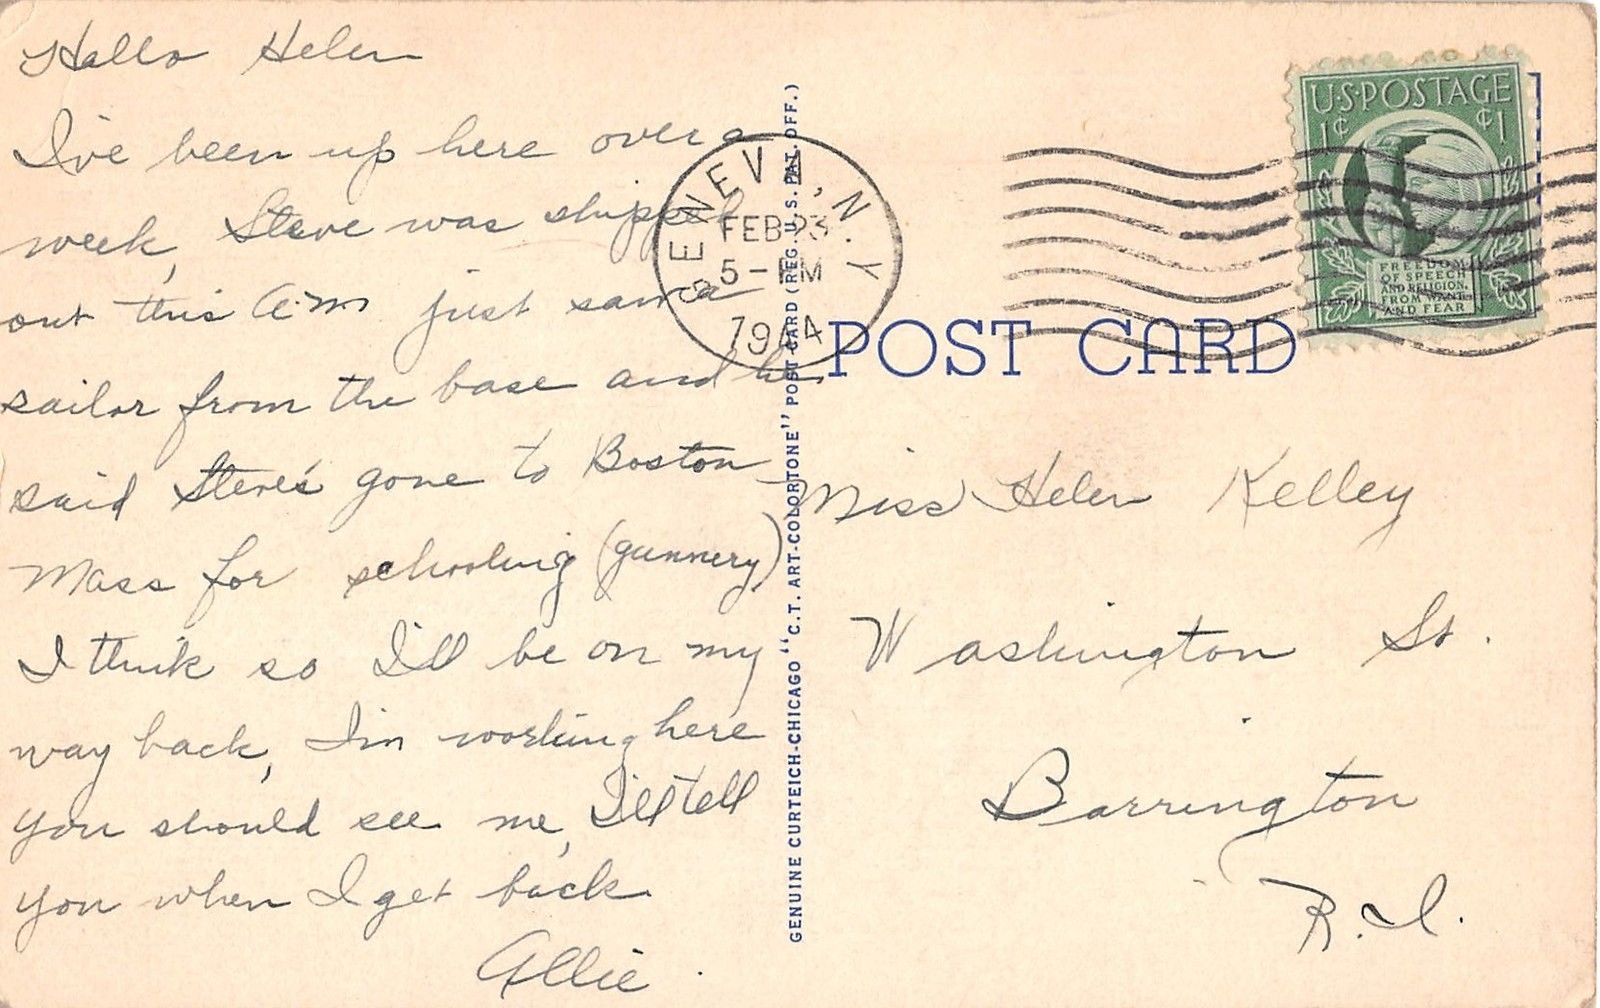 Hello Helen
I've been up here over a
week, Steve was shipped
out this A.M just saw a
sailor from the base and he
said Steve's gone to Boston
Mass for schooling (gunnery)
I think so I'll be on my
way back, I'm working here
you should see me, I'll tell
you when I get back
Allie
GENUINE CURTEICH-CHICAGO "C.T. ART-COLORTONE" POST CARD (REG. U.S. PAT. OFF.)
GENEVA, N.Y.
FEB 23
5-PM
1944
U·S·POSTAGE
1¢ ¢1
FREEDOM
OF SPEECH
AND RELIGION,
FROM WANT
AND FEAR
POST CARD
Miss Helen Kelley
Washington St.
Barrington
R.I.